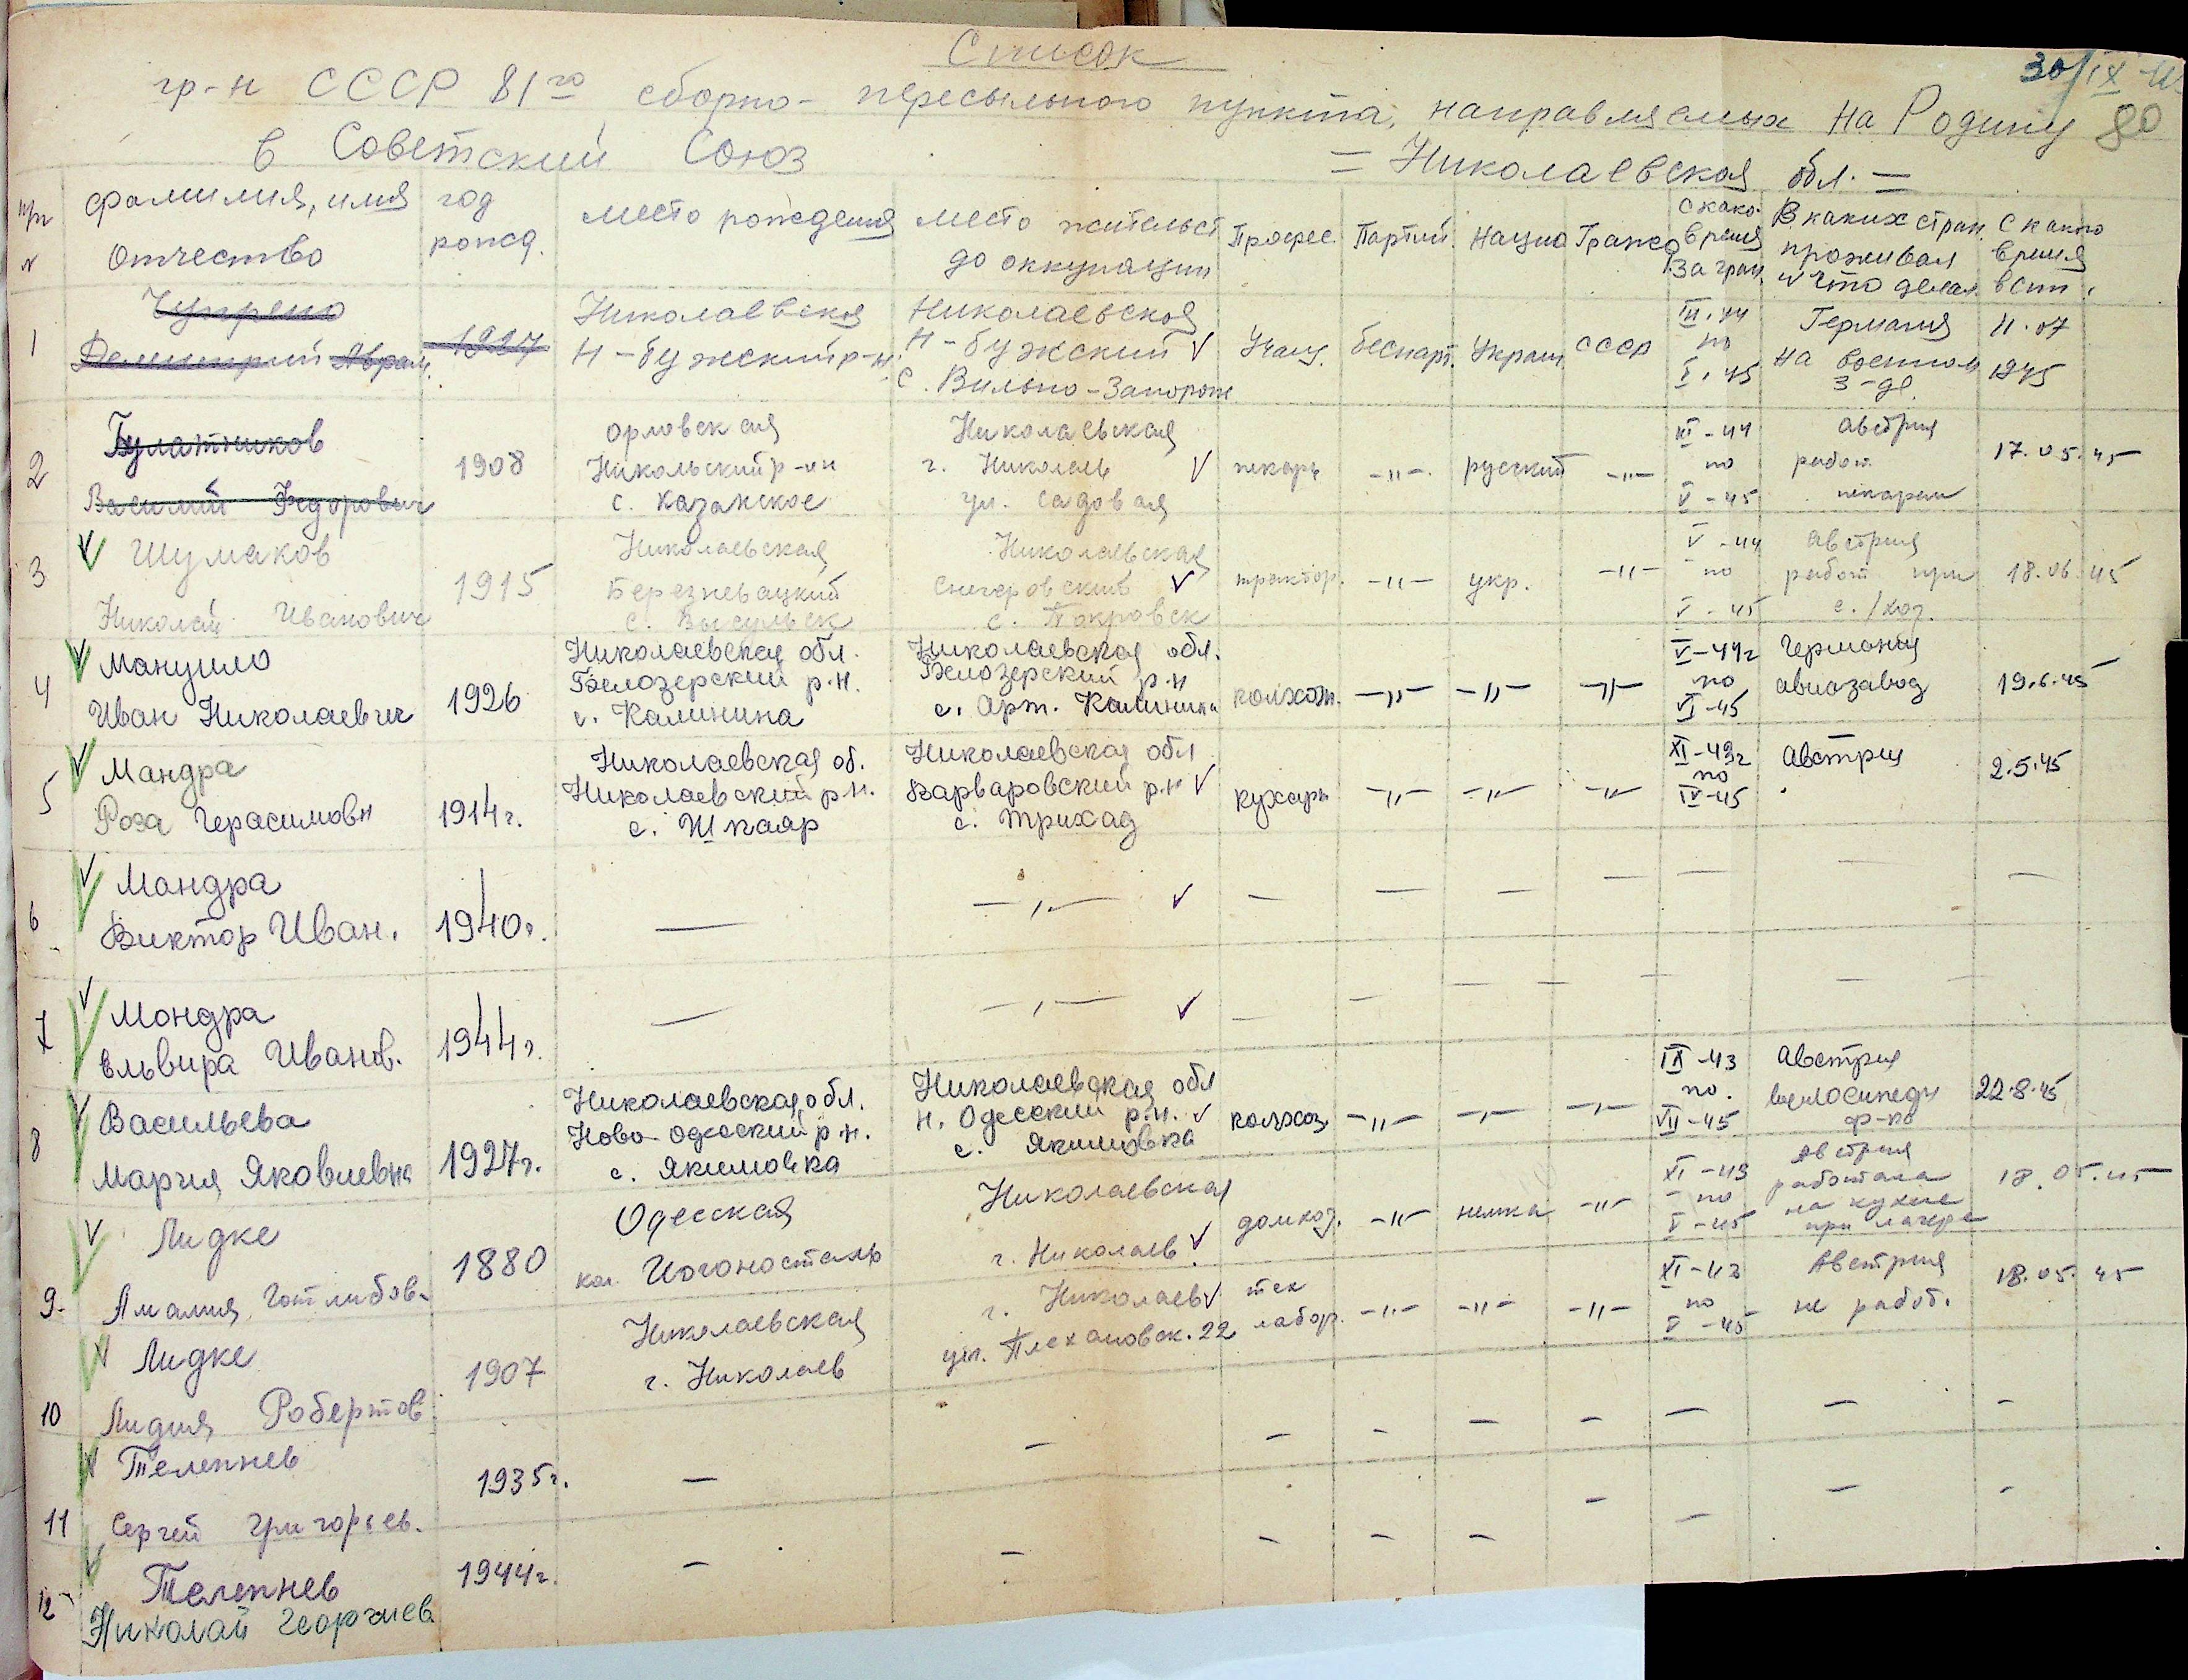 Список
30/IX
гр-н СССР 81го сборно-пересыльного пункта, направляемых на Родину 80
в Советский Союз
= Николаевская обл. =
фамилия, имя отчество
год рожд.
место рождения
место жительст до оккупации
Професс.
Партий.
Нацио
Гражд
С како- время за гран.
В каких стран. проживал и что делал
С какго время
1
Чупрено
Демитрий Абрам.
1927
Николаевская
Н-бужский р-н
Николаевская
Н-бужский ✓
с. Вильно-Запорож
Учащ.
беспарт.
Украин
СССР
III.44
по
V.45
Германия
на военном
з-де.
11.07
1945
2
Булатников
Василий Федорович
1908
Орловская
Никольский р-он
с. Казанское
Николаевская
г. Николаев ✓
ул. Садовая
пекарь
-"-
русский
-"-
III-44
по
V-45
Австрия
работ.
пекарни
17.05.45
3
✓ Шумаков
Николай Иванович
1915
Николаевская
Березневацкий
с. Висунск
Николаевская
Снегеровский ✓
с. Покровск
трактор.
-"-
укр.
-"-
V-44
по
V-45
Австрия
работ при
с./хоз.
18.06.45
4
✓ Мануило
Иван Николаевич
1926
Николаевская обл.
Белозерский р.н.
с. Калинина
Николаевская обл.
Белозерский р.н
с. Арт. Калинина
колхозн.
-"-
-"-
-"-
V-44г
по
VI-45
Германия
авиазавод
19.6.45
5
✓ Мандра
Роза Герасимовн
1914г.
Николаевская об.
Николаевский р.н.
с. Шпаяр
Николаевская обл
Варваровский р.н ✓
с. Трихад
кухарь
-"-
-"-
-"-
XI-43г
по
IV-45
Австрия
2.5.45
6
✓ Мандра
Виктор Иван.
1940г.
—
-"- ✓
— — — — — — —
7
✓ Мондра
Ельвира Иванов.
1944г.
—
-"- ✓
— — — — — — —
8
✓ Васильева
Мария Яковлевна
1927г.
Николаевская обл.
Ново-Одесский р.н.
с. Якимовка
Николаевская обл
Н. Одесский р.н. ✓
с. Якимовка
колхоз.
-"-
-"-
-"-
IX-43
по.
VII-45
Австрия
велосипедн
ф-ка
22.8.45
9.
✓ Лидке
Амалия Готлибов.
1880
Одесская
кол. Иоганосталь
Николаевская
г. Николаев ✓
домхоз.
-"-
немка
-"-
XI-43
по
V-45
Австрия
работала
на кухне
при лагере
18.05.45
10
✓ Лидке
Лидия Робертов
1907
Николаевская
г. Николаев
г. Николаев ✓
ул. Плехановск. 22
тех
лабор.
-"-
-"-
-"-
XI-43
по
V-45
Австрия
не работ.
18.05.45
11
✓ Телепнев
Сергей Григорьев.
1935г.
— — — — — — — — —
12
✓ Телепнев
Николай Георгиев
1944г.
— — — — — — — — —